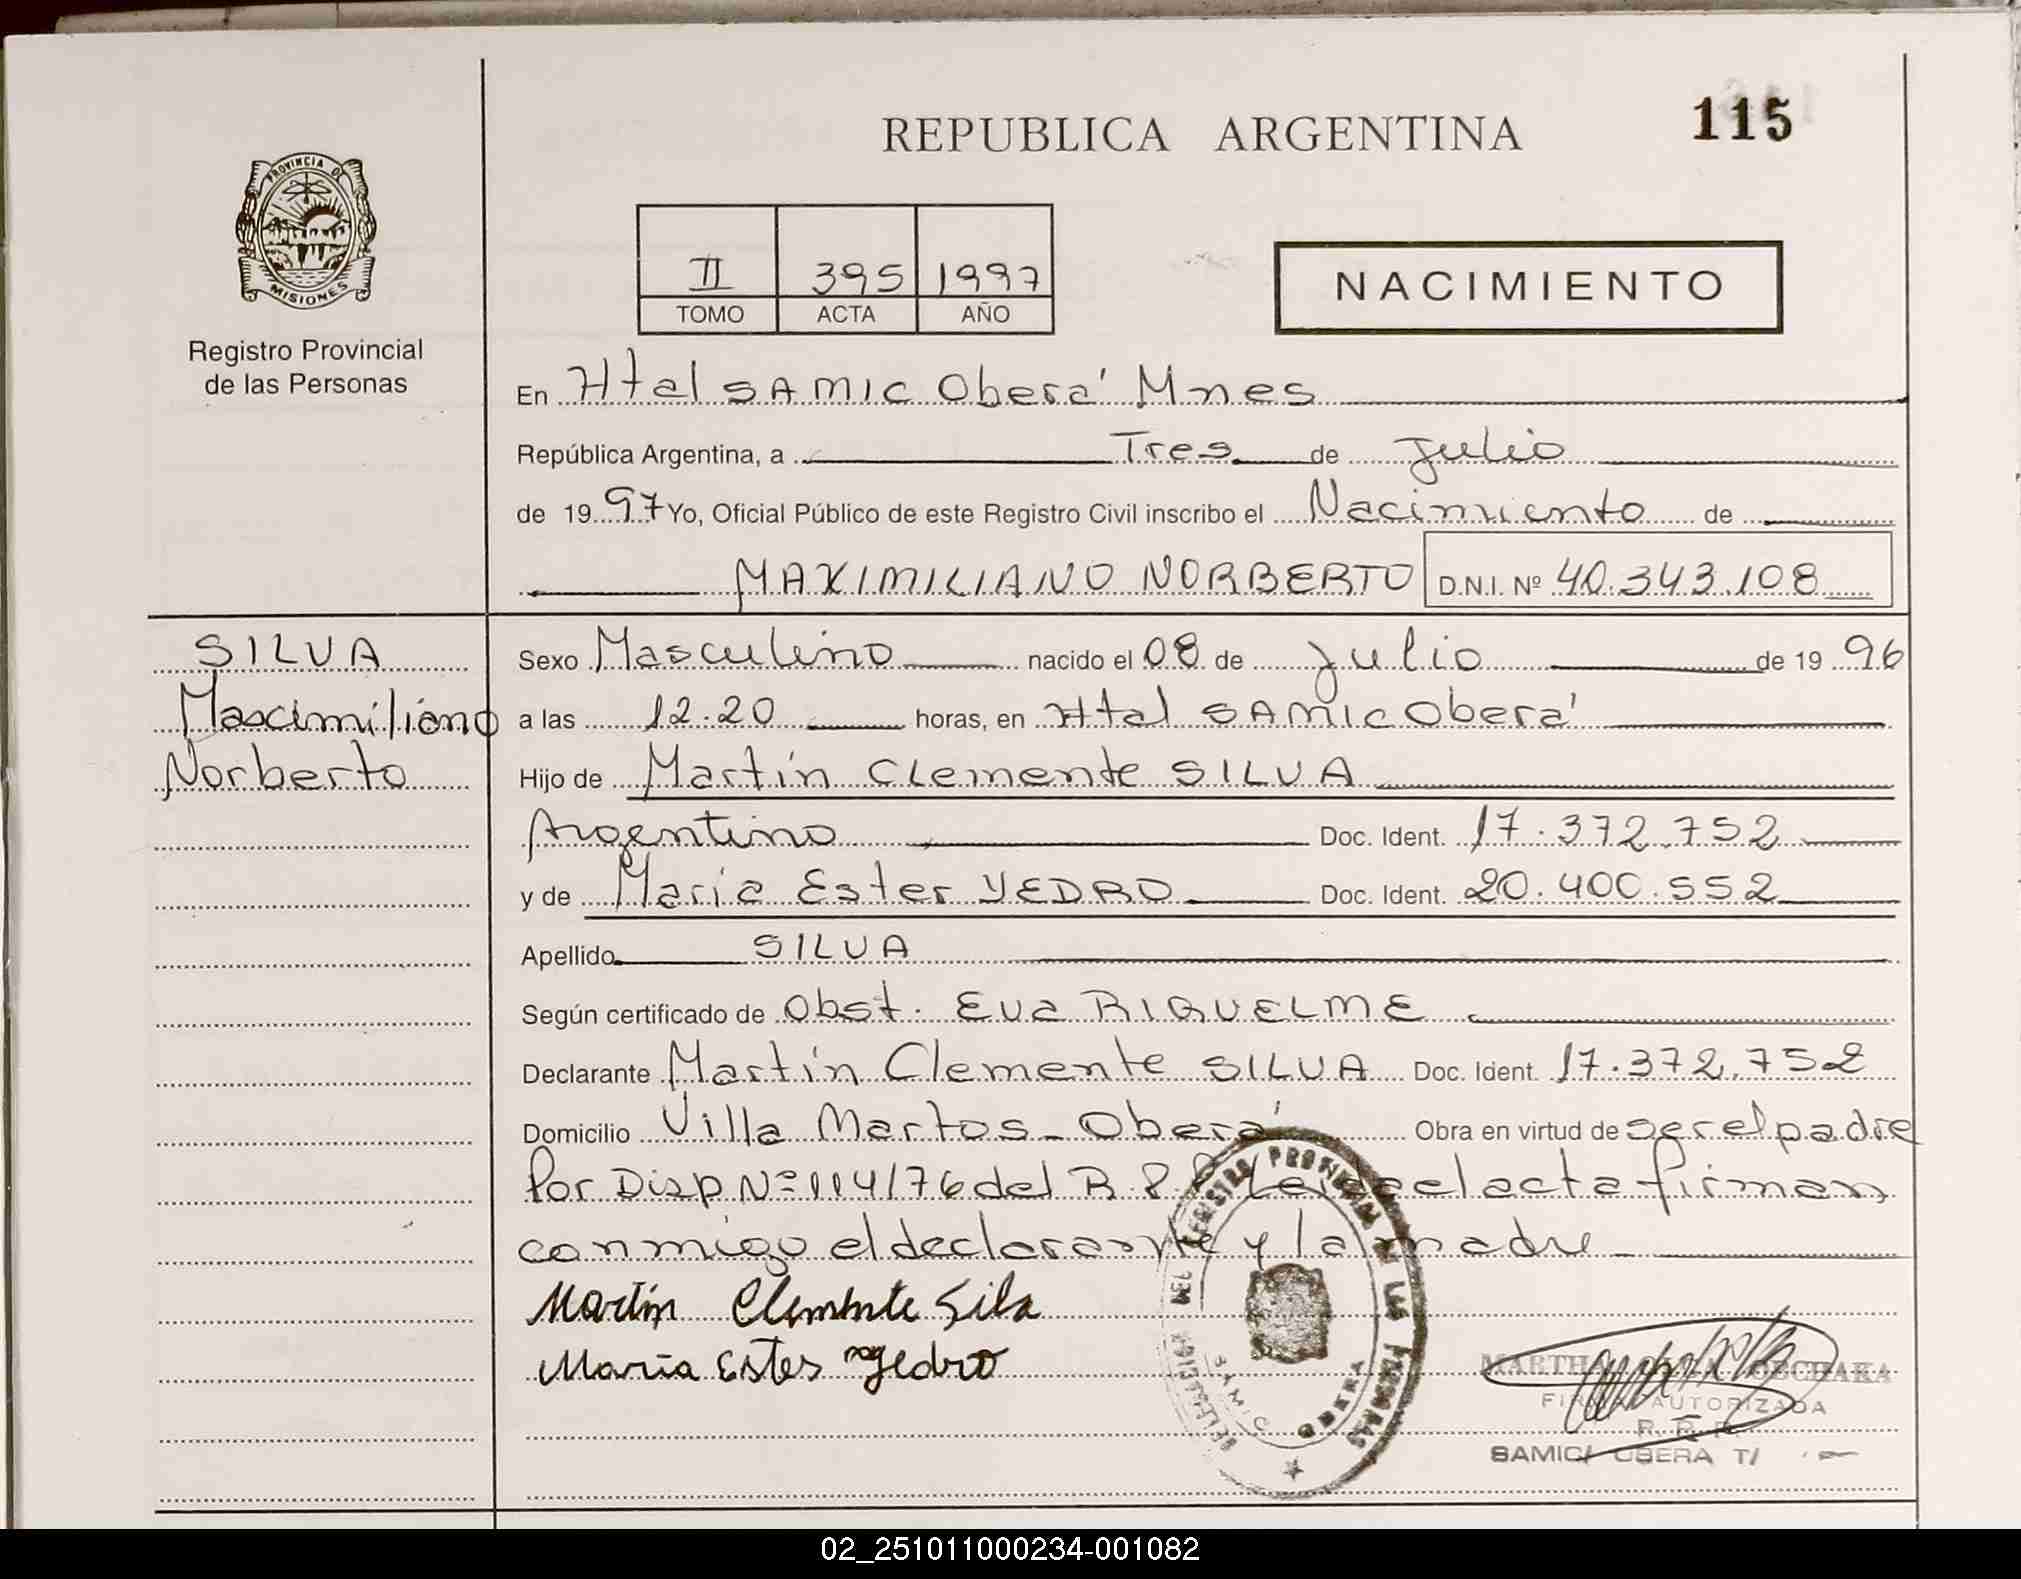 REPUBLICA ARGENTINA
115
PROVINCIA DE
MISIONES
Registro Provincial
de las Personas
II 395 1997
TOMO ACTA AÑO
NACIMIENTO
En Htal SAMIC Oberá Mnes
República Argentina, a Tres de Julio
de 1997 Yo, Oficial Público de este Registro Civil inscribo el Nacimiento de
MAXIMILIANO NORBERTO D.N.I. Nº 40.343.108
SILVA
Maximiliano
Norberto
Sexo Masculino nacido el 08 de Julio de 1996
a las 12.20 horas, en Htal SAMIC Oberá
Hijo de Martín Clemente SILVA
Argentino Doc. Ident. 17.372.752
y de María Ester YEDRO Doc. Ident. 20.400.552
Apellido SILVA
Según certificado de Obst. Eva RIQUELME
Declarante Martín Clemente SILVA Doc. Ident. 17.372.752
Domicilio Villa Martos - Oberá Obra en virtud de ser el padre
Por Disp Nº 114/76 del R.P. Leída el acta firman
conmigo el declarante y la madre
Martín Clemente Silva
María Ester Yedro
DELEGACION DEL REGISTRO PROVINCIAL DE LAS PERSONAS
SAMIC
OBERA
MARTHA OBCHAKA
FIRMA AUTORIZADA
R. P. P.
SAMIC OBERA T/
02_251011000234-001082